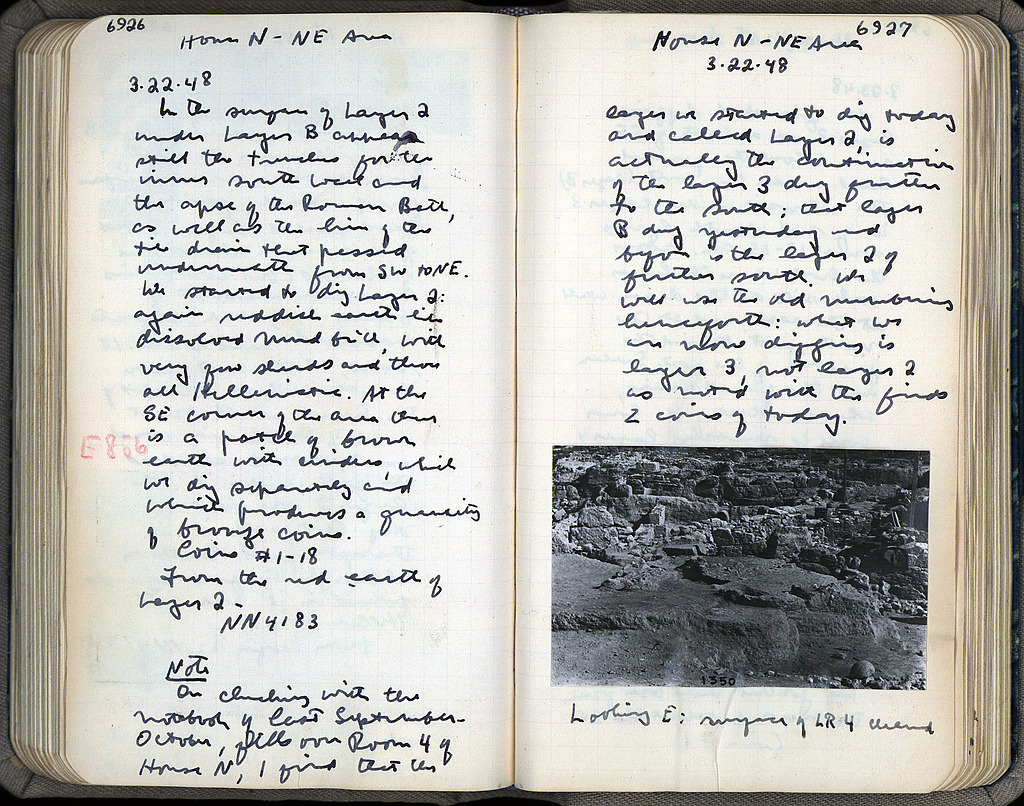 6926
House N - NE Area
3.22.48
In the surface of Layer 2
under Layer B appear
still the trenches for the
inner south wall and
the apse of the Roman Bath,
as well as the line of the
tile drain that passed
underneath from SW to NE.
We started to dig Layer 2:
again reddish earth like
dissolved mud brick, with
very few sherds and those
all Hellenistic. At the
SE corner of the area there
is a patch of brown
E 866
earth with cinders, which
we dig separately and
which produces a quantity
of bronze coins.
Coins #1-18
From the red earth of
Layer 2 -
NN 4183
Note
On checking with the
notebook of last September-
October, fills over Room 4 of
House N, I find that the
6927
House N - NE Area
3.22.48
layer we started to dig today
and called Layer 2, is
actually the continuation
of the layer 3 dug further
to the south; that layer
B dug yesterday and
before is the layer 2 of
further south. We
will use the old numbering
henceforth: what we
are now digging is
layer 3, not layer 2
as noted with the finds
& coins of today.
1350
Looking E: surface of LR 4 cleared